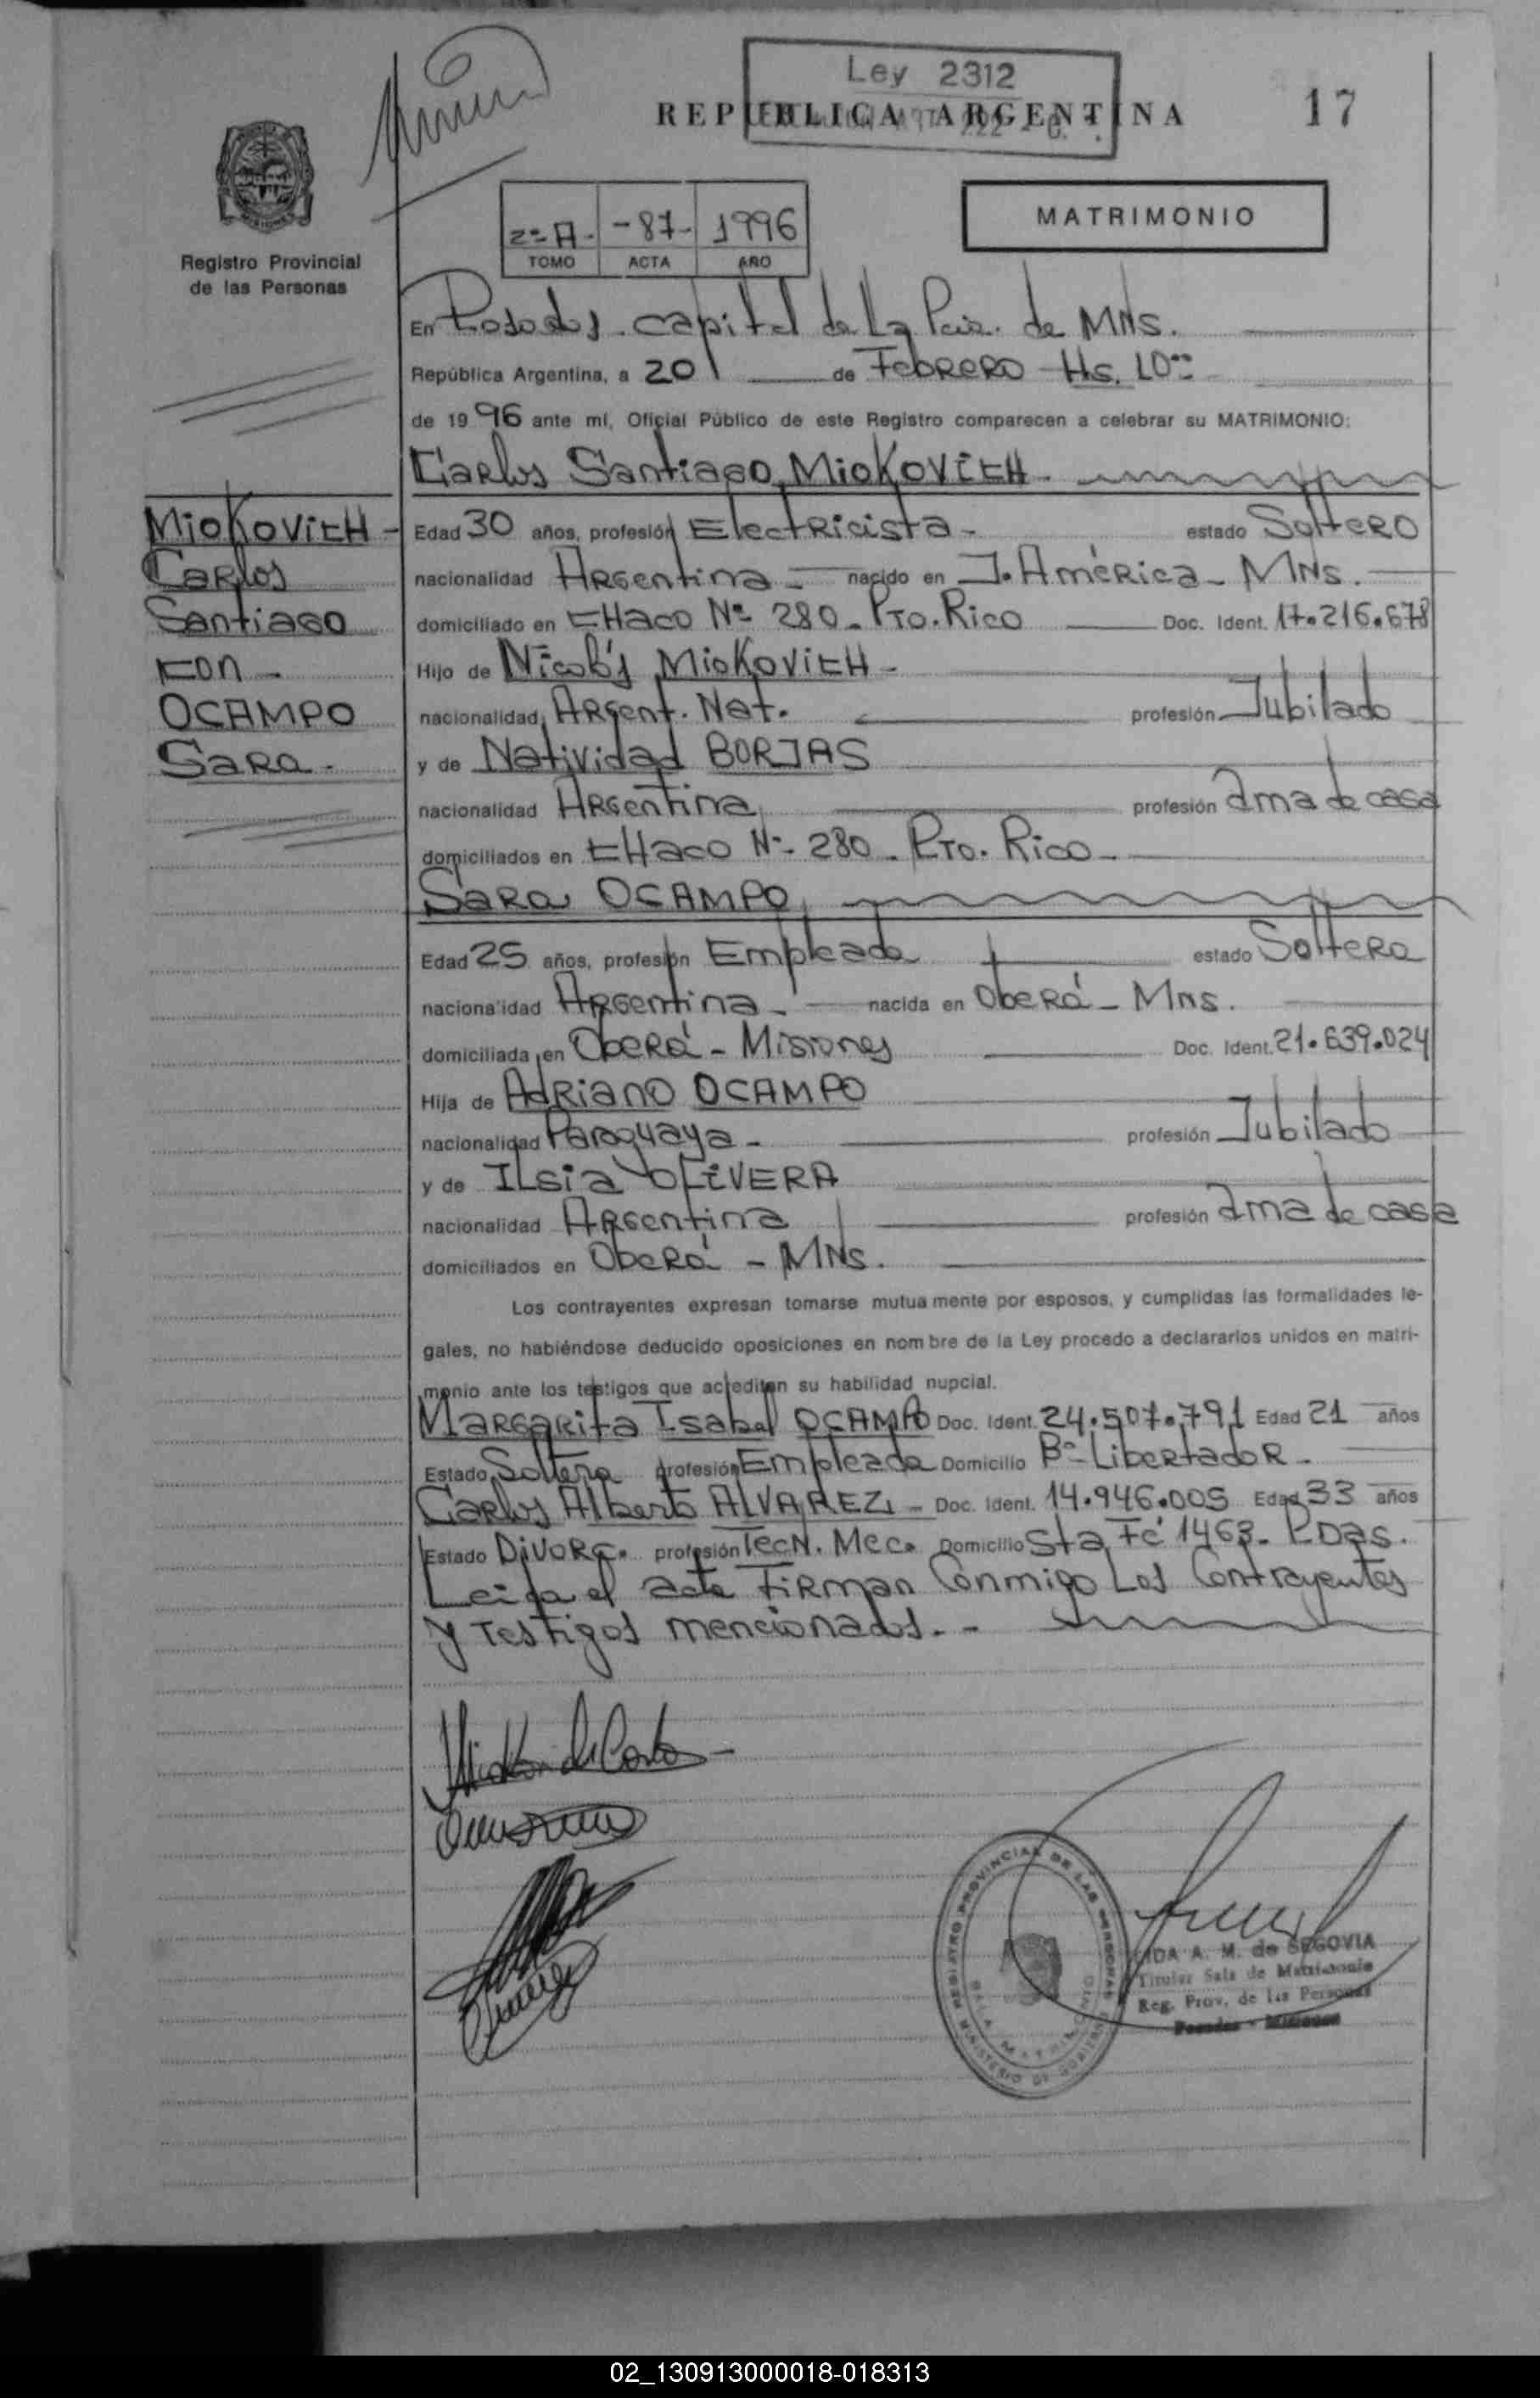 Ley 2312
REPUBLICA ARGENTINA
17
Registro Provincial
de las Personas
2º A - -87- 1996
TOMO ACTA AÑO
MATRIMONIO
En Posadas capital de La Pcia. de MNS.
República Argentina, a 20 de Febrero Hs. 10
de 1996 ante mí, Oficial Público de este Registro comparecen a celebrar su MATRIMONIO:
Carlos Santiago MioKovicH
MioKovicH -
Carlos
Santiago
con -
OCAMPO
Sara -
Edad 30 años, profesión Electricista - estado Soltero
nacionalidad Argentina - nacido en J. América - MNS.
domiciliado en CHaco Nº 280 - Pto. Rico Doc. Ident. 17.216.678
Hijo de Nicolás MioKovicH -
nacionalidad Argent. Nat. profesión Jubilado
y de Natividad BORJAS
nacionalidad Argentina profesión ama de casa
domiciliados en CHaco Nº 280 - Pto. Rico -
Sara OCAMPO
Edad 25 años, profesión Empleada estado Soltera
nacionalidad Argentina - nacida en Oberá - MNS.
domiciliada en Oberá - Misiones Doc. Ident. 21.639.024
Hija de Adriano OCAMPO
nacionalidad Paraguaya - profesión Jubilado
y de ILsia OLiVERA
nacionalidad Argentina profesión ama de casa
domiciliados en Oberá - MNS.
Los contrayentes expresan tomarse mutuamente por esposos, y cumplidas las formalidades le-
gales, no habiéndose deducido oposiciones en nombre de la Ley procedo a declararlos unidos en matri-
monio ante los testigos que acrediten su habilidad nupcial.
Margarita Isabel OCAMPO Doc. Ident. 24.507.791 Edad 21 años
Estado Soltera profesión Empleada Domicilio Bº Libertador -
Carlos Alberto ALVAREZ - Doc. Ident. 14.946.005 Edad 33 años
Estado Divorc. profesión Tecn. Mec. Domicilio Sta Fé 1463 - Pdas.
Leida el acta Firman Conmigo Los Contrayentes
y Testigos mencionados. -
REGISTRO PROVINCIAL DE LAS PERSONAS
SALA MATRIMONIO
MINISTERIO DE GOBIERNO
A. M. de SEGOVIA
Titular Sala de Matrimonio
Reg. Prov. de las Personas
Posadas - Misiones
02_130913000018-018313